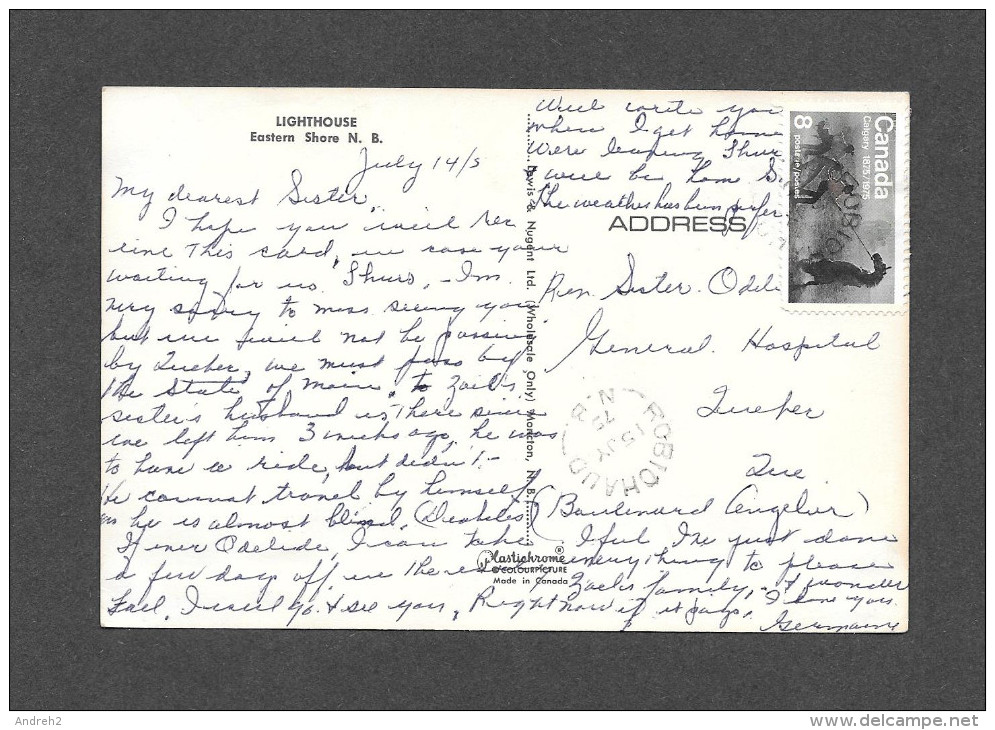 LIGHTHOUSE
Eastern Shore N. B.
July 14/5
My dearest Sister
I hope you will rec
eive This card, in case your
waiting for us Thurs, - I'm
very sorry to miss seeing you
but we will not be passing
by Quebec, we must pass by
the State of Maine, to Zoel's
sister's husband is there since
we left him 3 weeks ago, he was
to have a ride, but didn't. -
He cannot travel by himself
as he is almost blind, (Diabetes)
If ever Odelide, I can take
a few days off in the
Fall, I will go & see you, Right now
Will write you
when I get home
Were leaving Thur
will be home S.
the weather has been perfec
ADDRESS
Rev. Sister. Odeli
General. Hospital
Quebec
Que
(Boulevard Langelier)
I feel I've just done
everything to please
Zoel's family, - & wonder
if it pays, I love you.
Germaine
Lewis & Nugent Ltd. (Wholesale Only) Moncton, N. B.
Plastichrome®
© COLOURPICTURE
Made in Canada
Canada
Calgary 1875/1975
8
postes/postage
ROBICHAUD
N.B
15 JY
75
Andreh2
www.delcampe.net